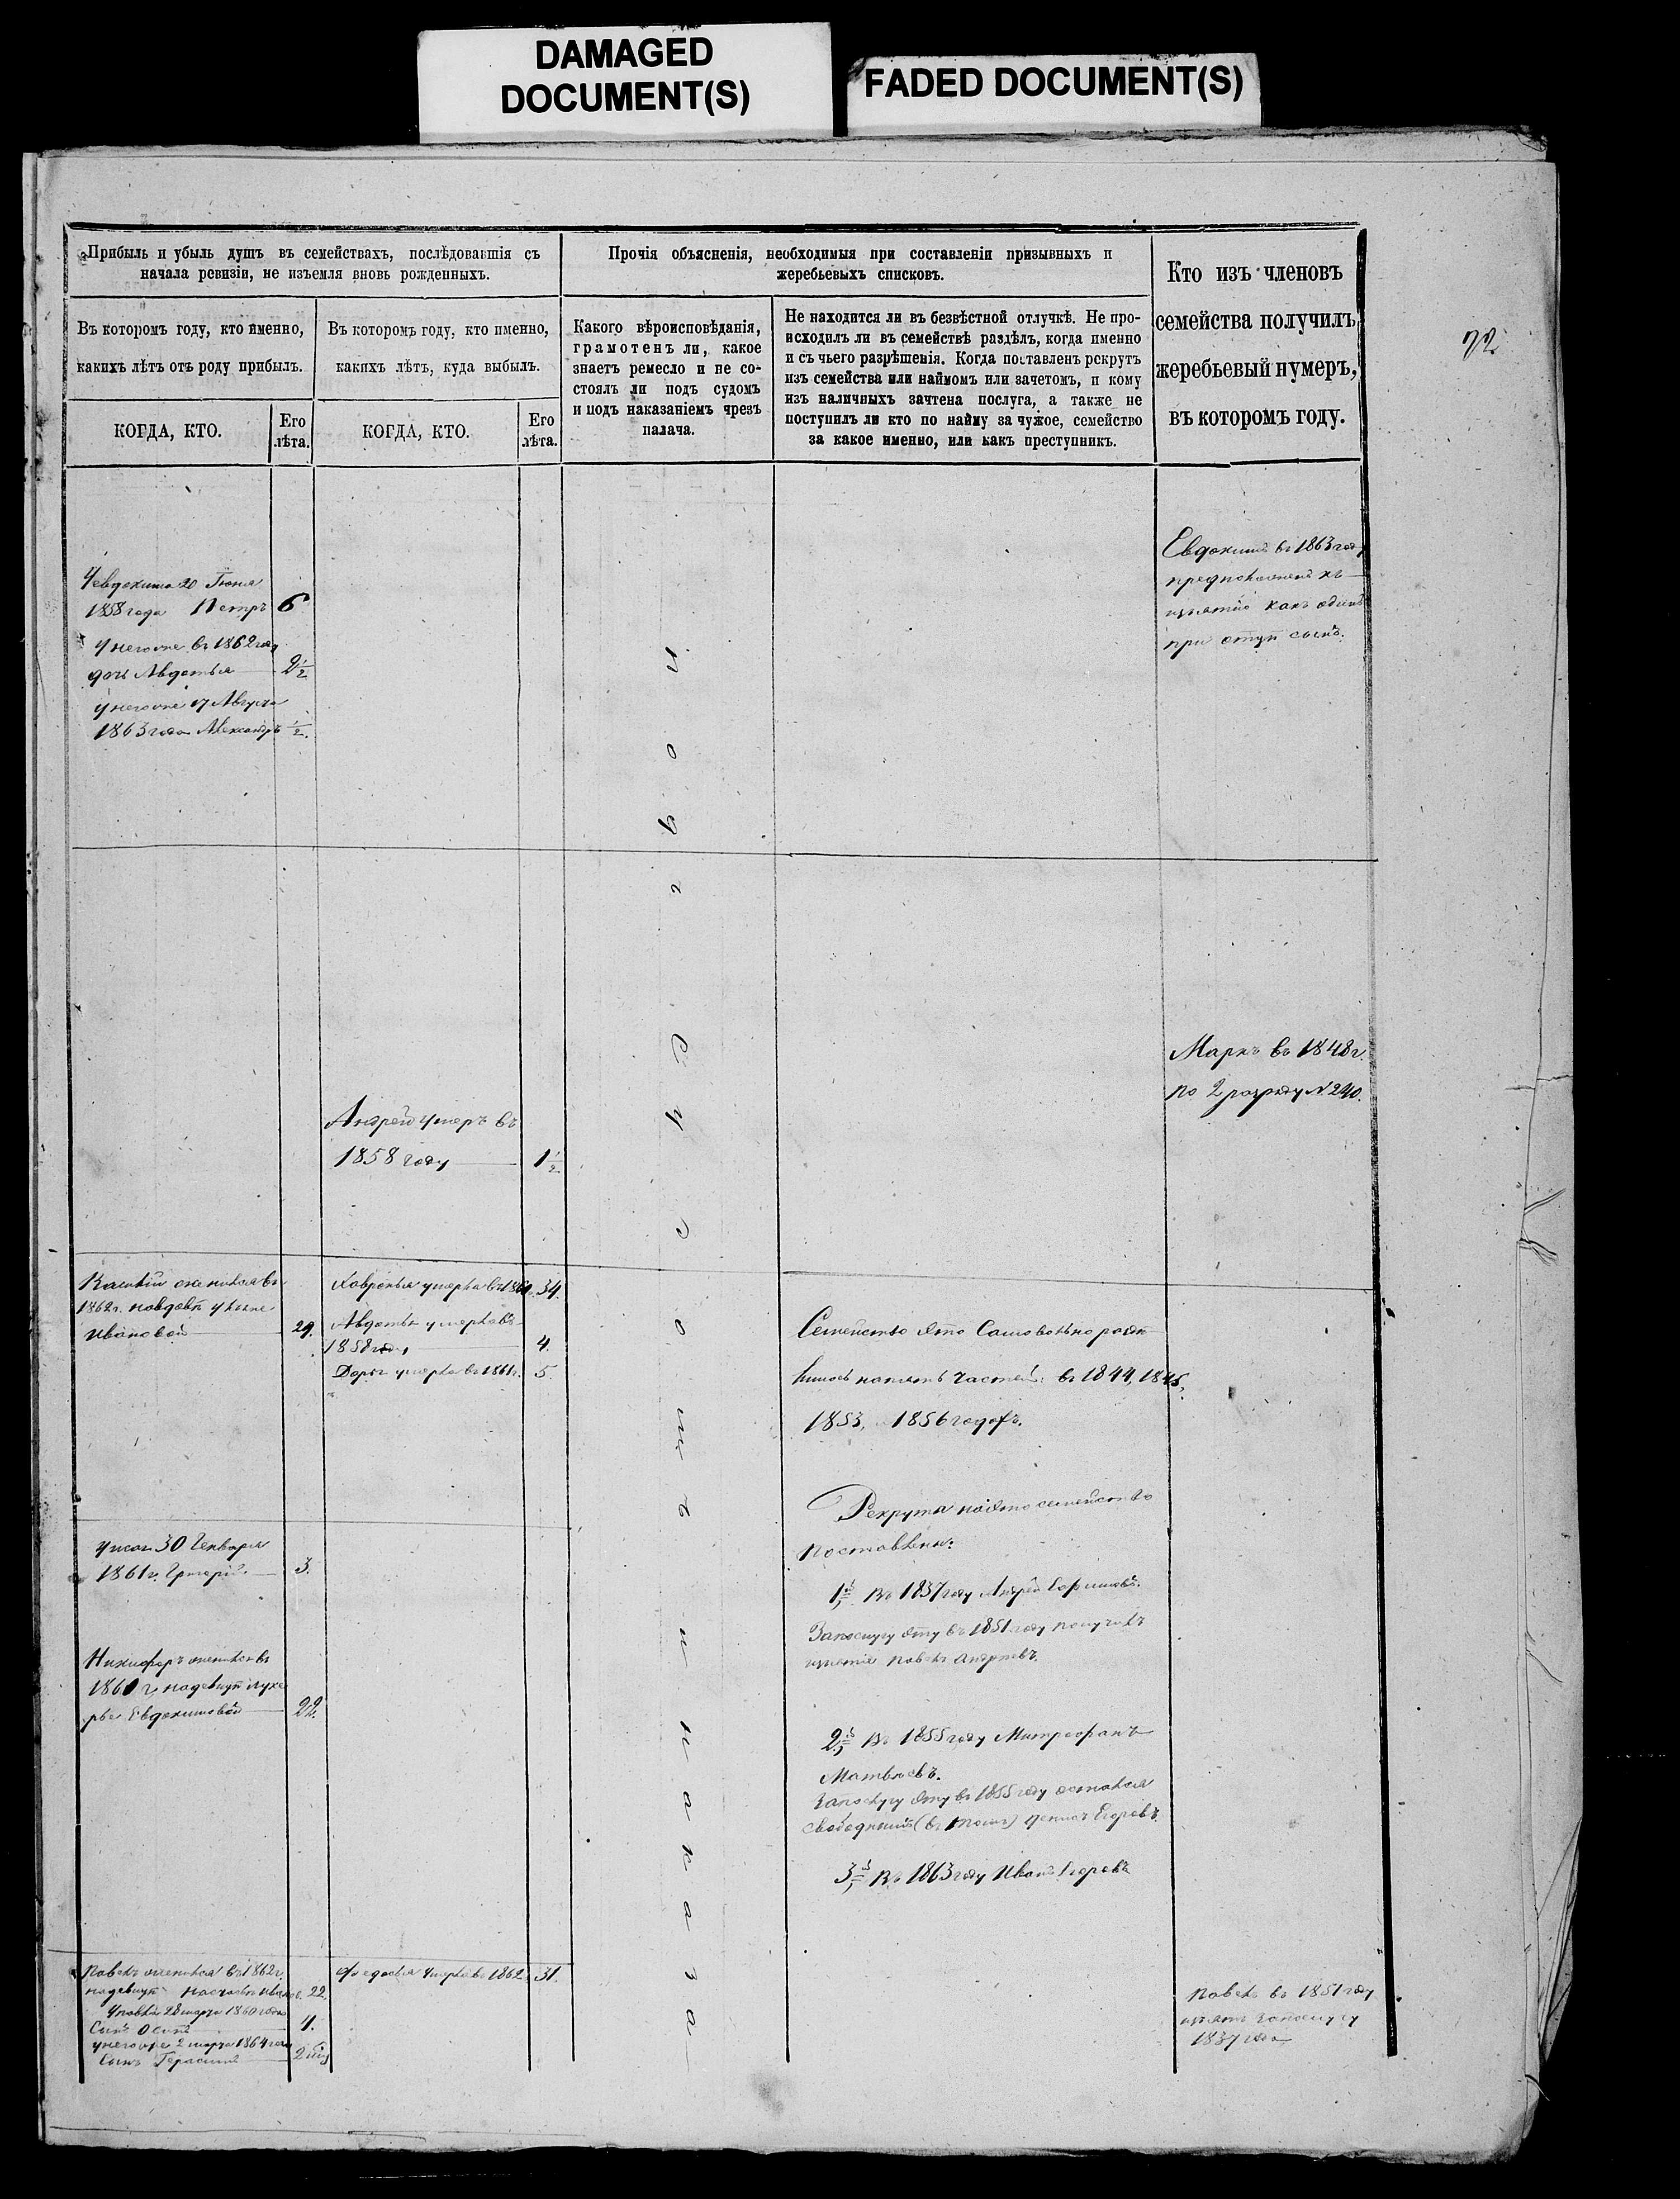 DAMAGED
DOCUMENT(S)
FADED DOCUMENT(S)
72
Прибыль и убыль душъ въ семействахъ, послѣдовавшія съ
начала ревизіи, не изъемля вновь рожденныхъ.
Въ которомъ году, кто именно,
какихъ лѣтъ отъ роду прибылъ.
КОГДА, КТО.
Его
лѣта.
Въ которомъ году, кто именно,
какихъ лѣтъ, куда выбылъ.
КОГДА, КТО.
Его
лѣта.
Прочія объясненія, необходимыя при составленіи призывныхъ и
жеребьевыхъ списковъ.
Какого вѣроисповѣданія,
грамотенъ ли, какое
знаетъ ремесло и не со-
стоялъ ли подъ судомъ
и подъ наказаніемъ чрезъ
палача.
Не находится ли въ безвѣстной отлучкѣ. Не про-
исходилъ ли въ семействѣ раздѣлъ, когда именно
и съ чьего разрѣшенія. Когда поставленъ рекрутъ
изъ семейства или наймомъ или зачетомъ, и кому
изъ наличныхъ зачтена послуга, а также не
поступилъ ли кто по найму за чужое, семейство
за какое именно, или какъ преступникъ.
Кто изъ членовъ
семейства получилъ
жеребьевый нумеръ,
въ которомъ году.
Уевдокима 20 Июня
1858 года Петръ 6
у негоже въ 1862 году
дочь Авдотья 2½
у негоже 17 Августа
1863 года Александръ ½.
Евдокимъ въ 1863 году
къ
изъятию какъ одинъ
при сынъ.
Андрей умеръ въ
1858 году 1½
Маркъ въ 1848 г.
по 2 разряду N 240.
женился въ
1862 г. на вдовѣ Ульяне
Ивановой 29.
Ховронья умерла въ 34.
Авдотья умерла въ
1858 году 4.
Дарья умерла въ 1861 г. 5.
Семейство это самовольно раздѣ
лилось на пять частей: въ 1844, 1845,
1853, 1856 годахъ.
Рекрута на это семейство
поставлены:
1й Въ 1837 году Андрей
За послугу эту въ 1851 году получилъ
изъятие Павелъ Андреевъ.
2й Въ 1855 году Митрофанъ
Матвѣевъ.
За послугу эту въ 1855 году остался
свободнымъ Егоровъ.
3й Въ 1863 году Иванъ Егоровъ
30 Генваря
1861 г. Григорій 3.
Никифоръ женился въ
1861 г. на девицѣ Луке
рье Евдокимовой 22.
Павелъ женился въ 1862 г.
на девицѣ Настасьѣ 22.
У Павла 28 марта 1860 года
сынъ Осипъ 4.
у негоже 2 марта 1864 года
сынъ Герасимъ 2
Федосья умерла въ 1862 31.
Павелъ въ 1851 году
изъятъ за послугу
1837 года
п о д ъ С у д о м ъ и н а к а з а